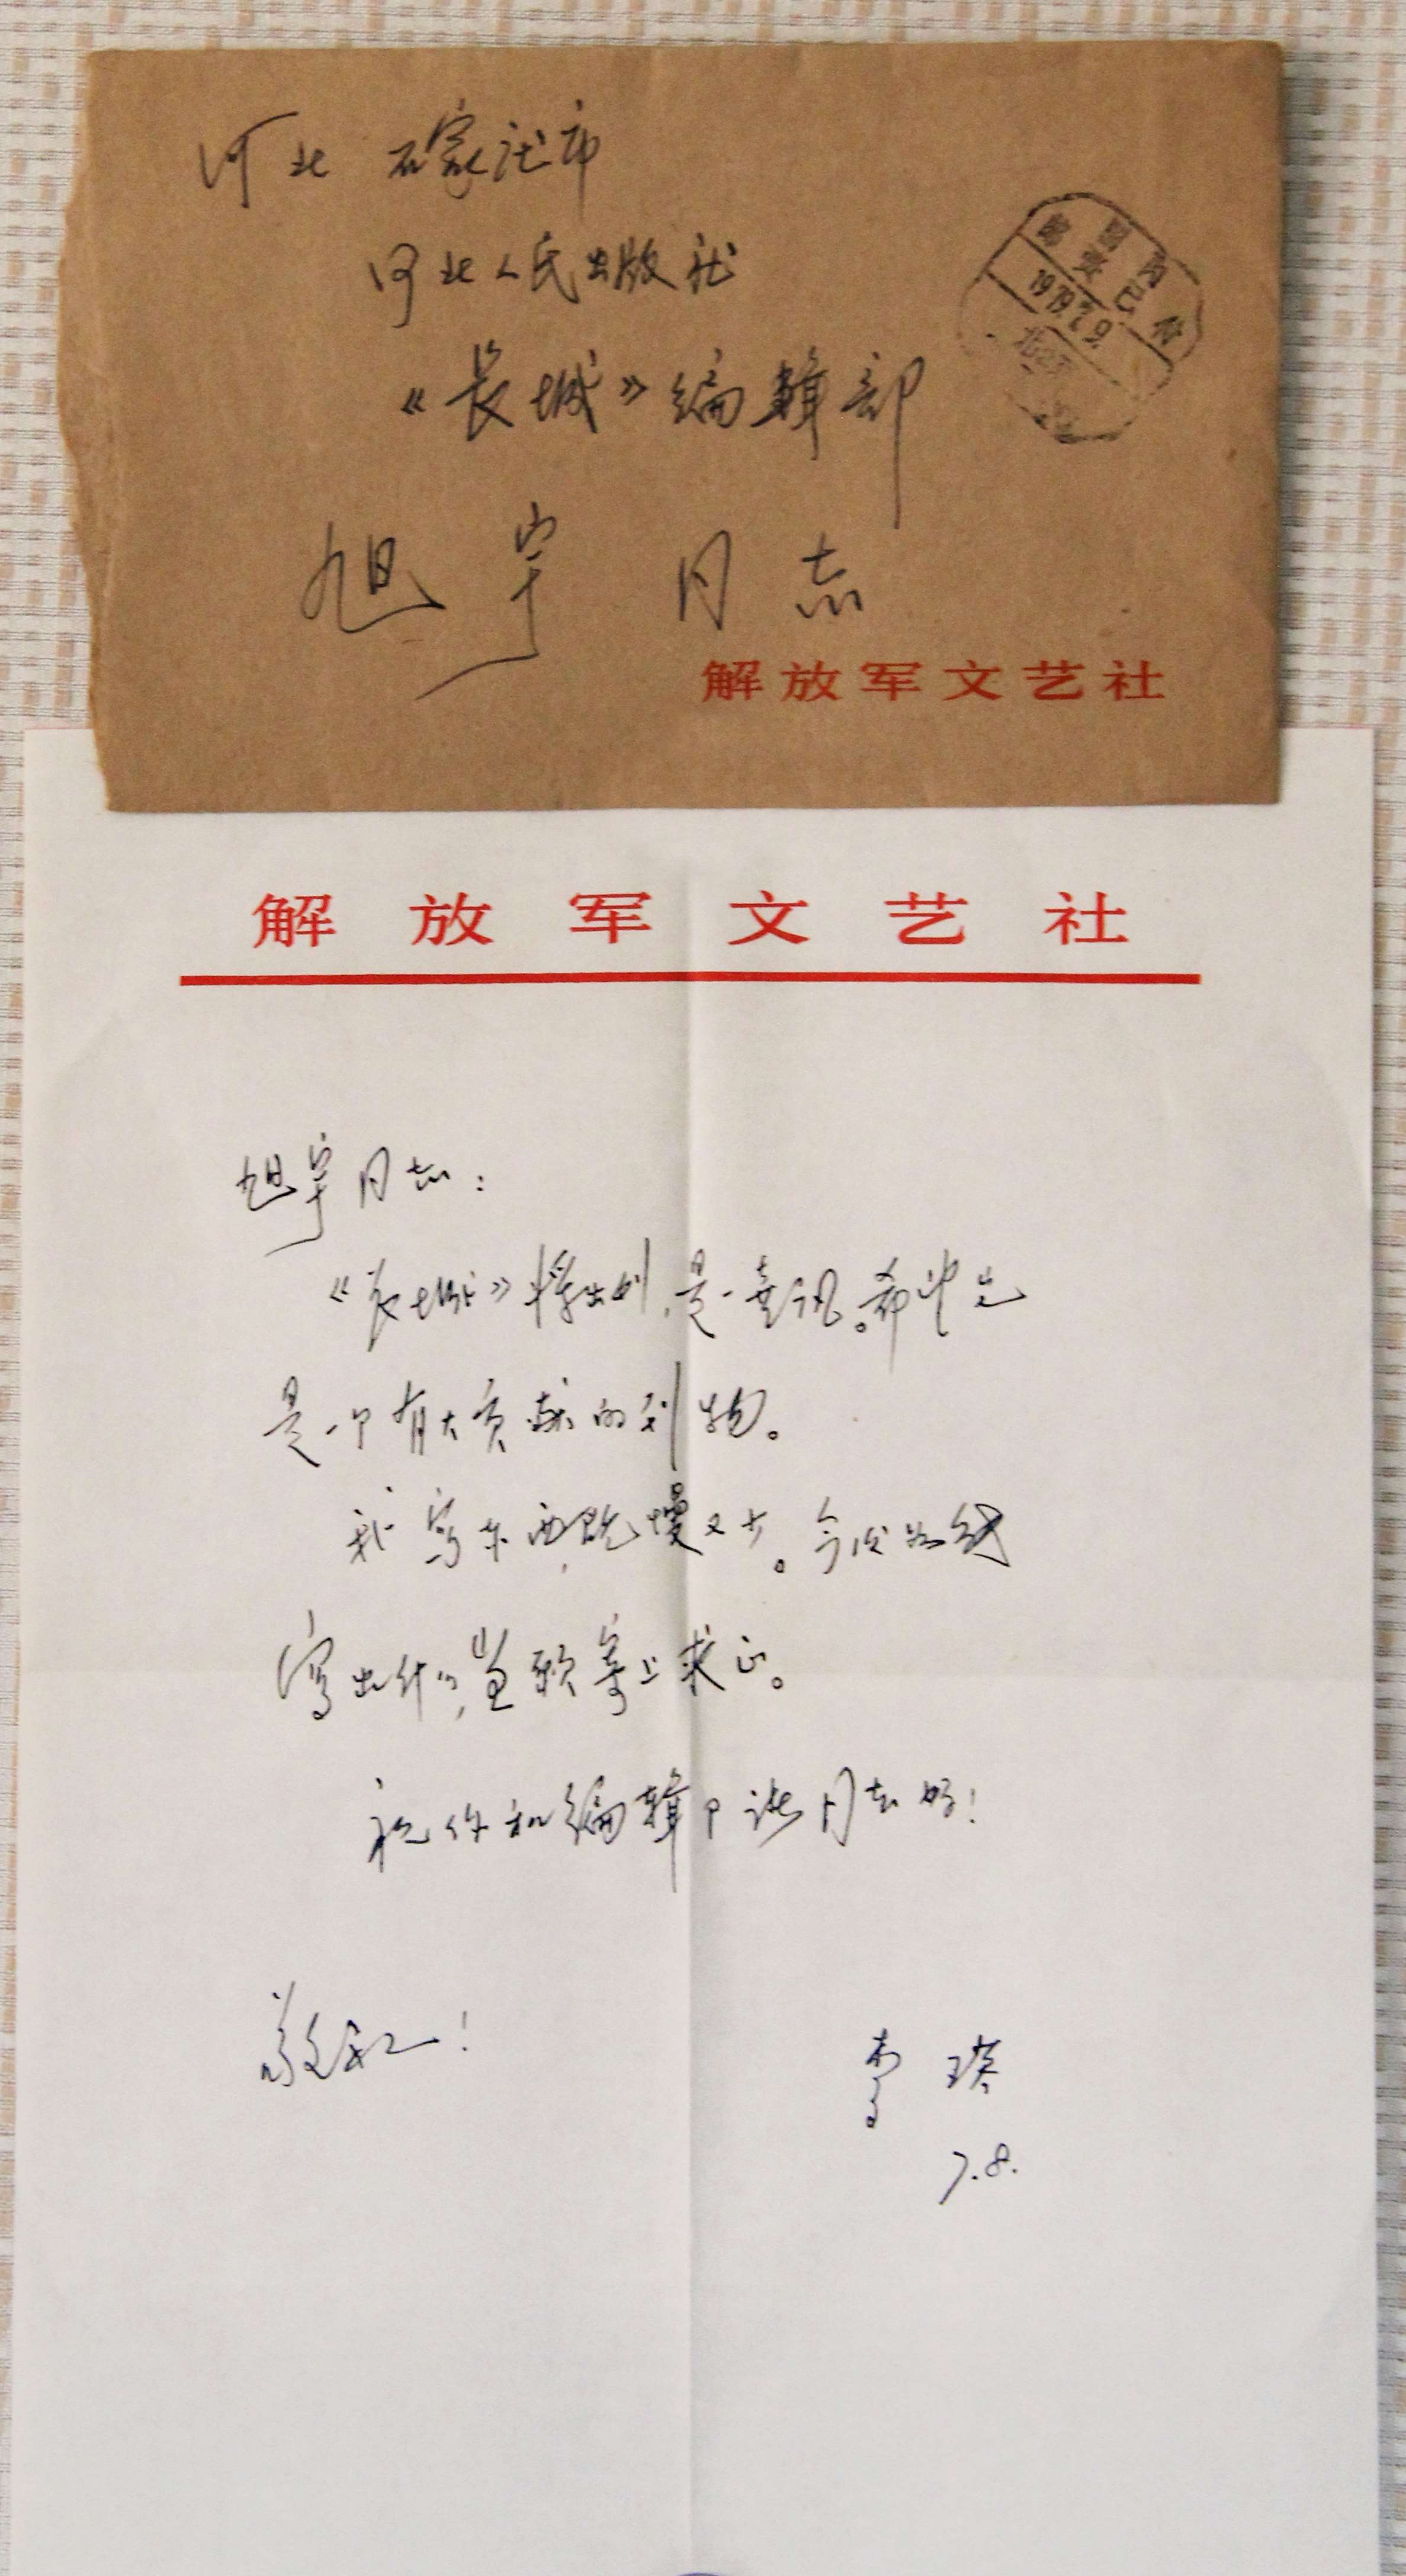 河北 石家庄市
河北人民出版社
《长城》编辑部
旭宇 同志
国内
邮资已付
1979.7.9.
北京
解放军文艺社
解放军文艺社
旭宇同志：
《长城》将出刊，是一喜讯。希望它
是一个有大贡献的刊物。
我写东西，既慢又少。今后如能
写出什么，当即寄上求正。
祝你和编辑部诸同志好！
敬礼！
李瑛
7.8.